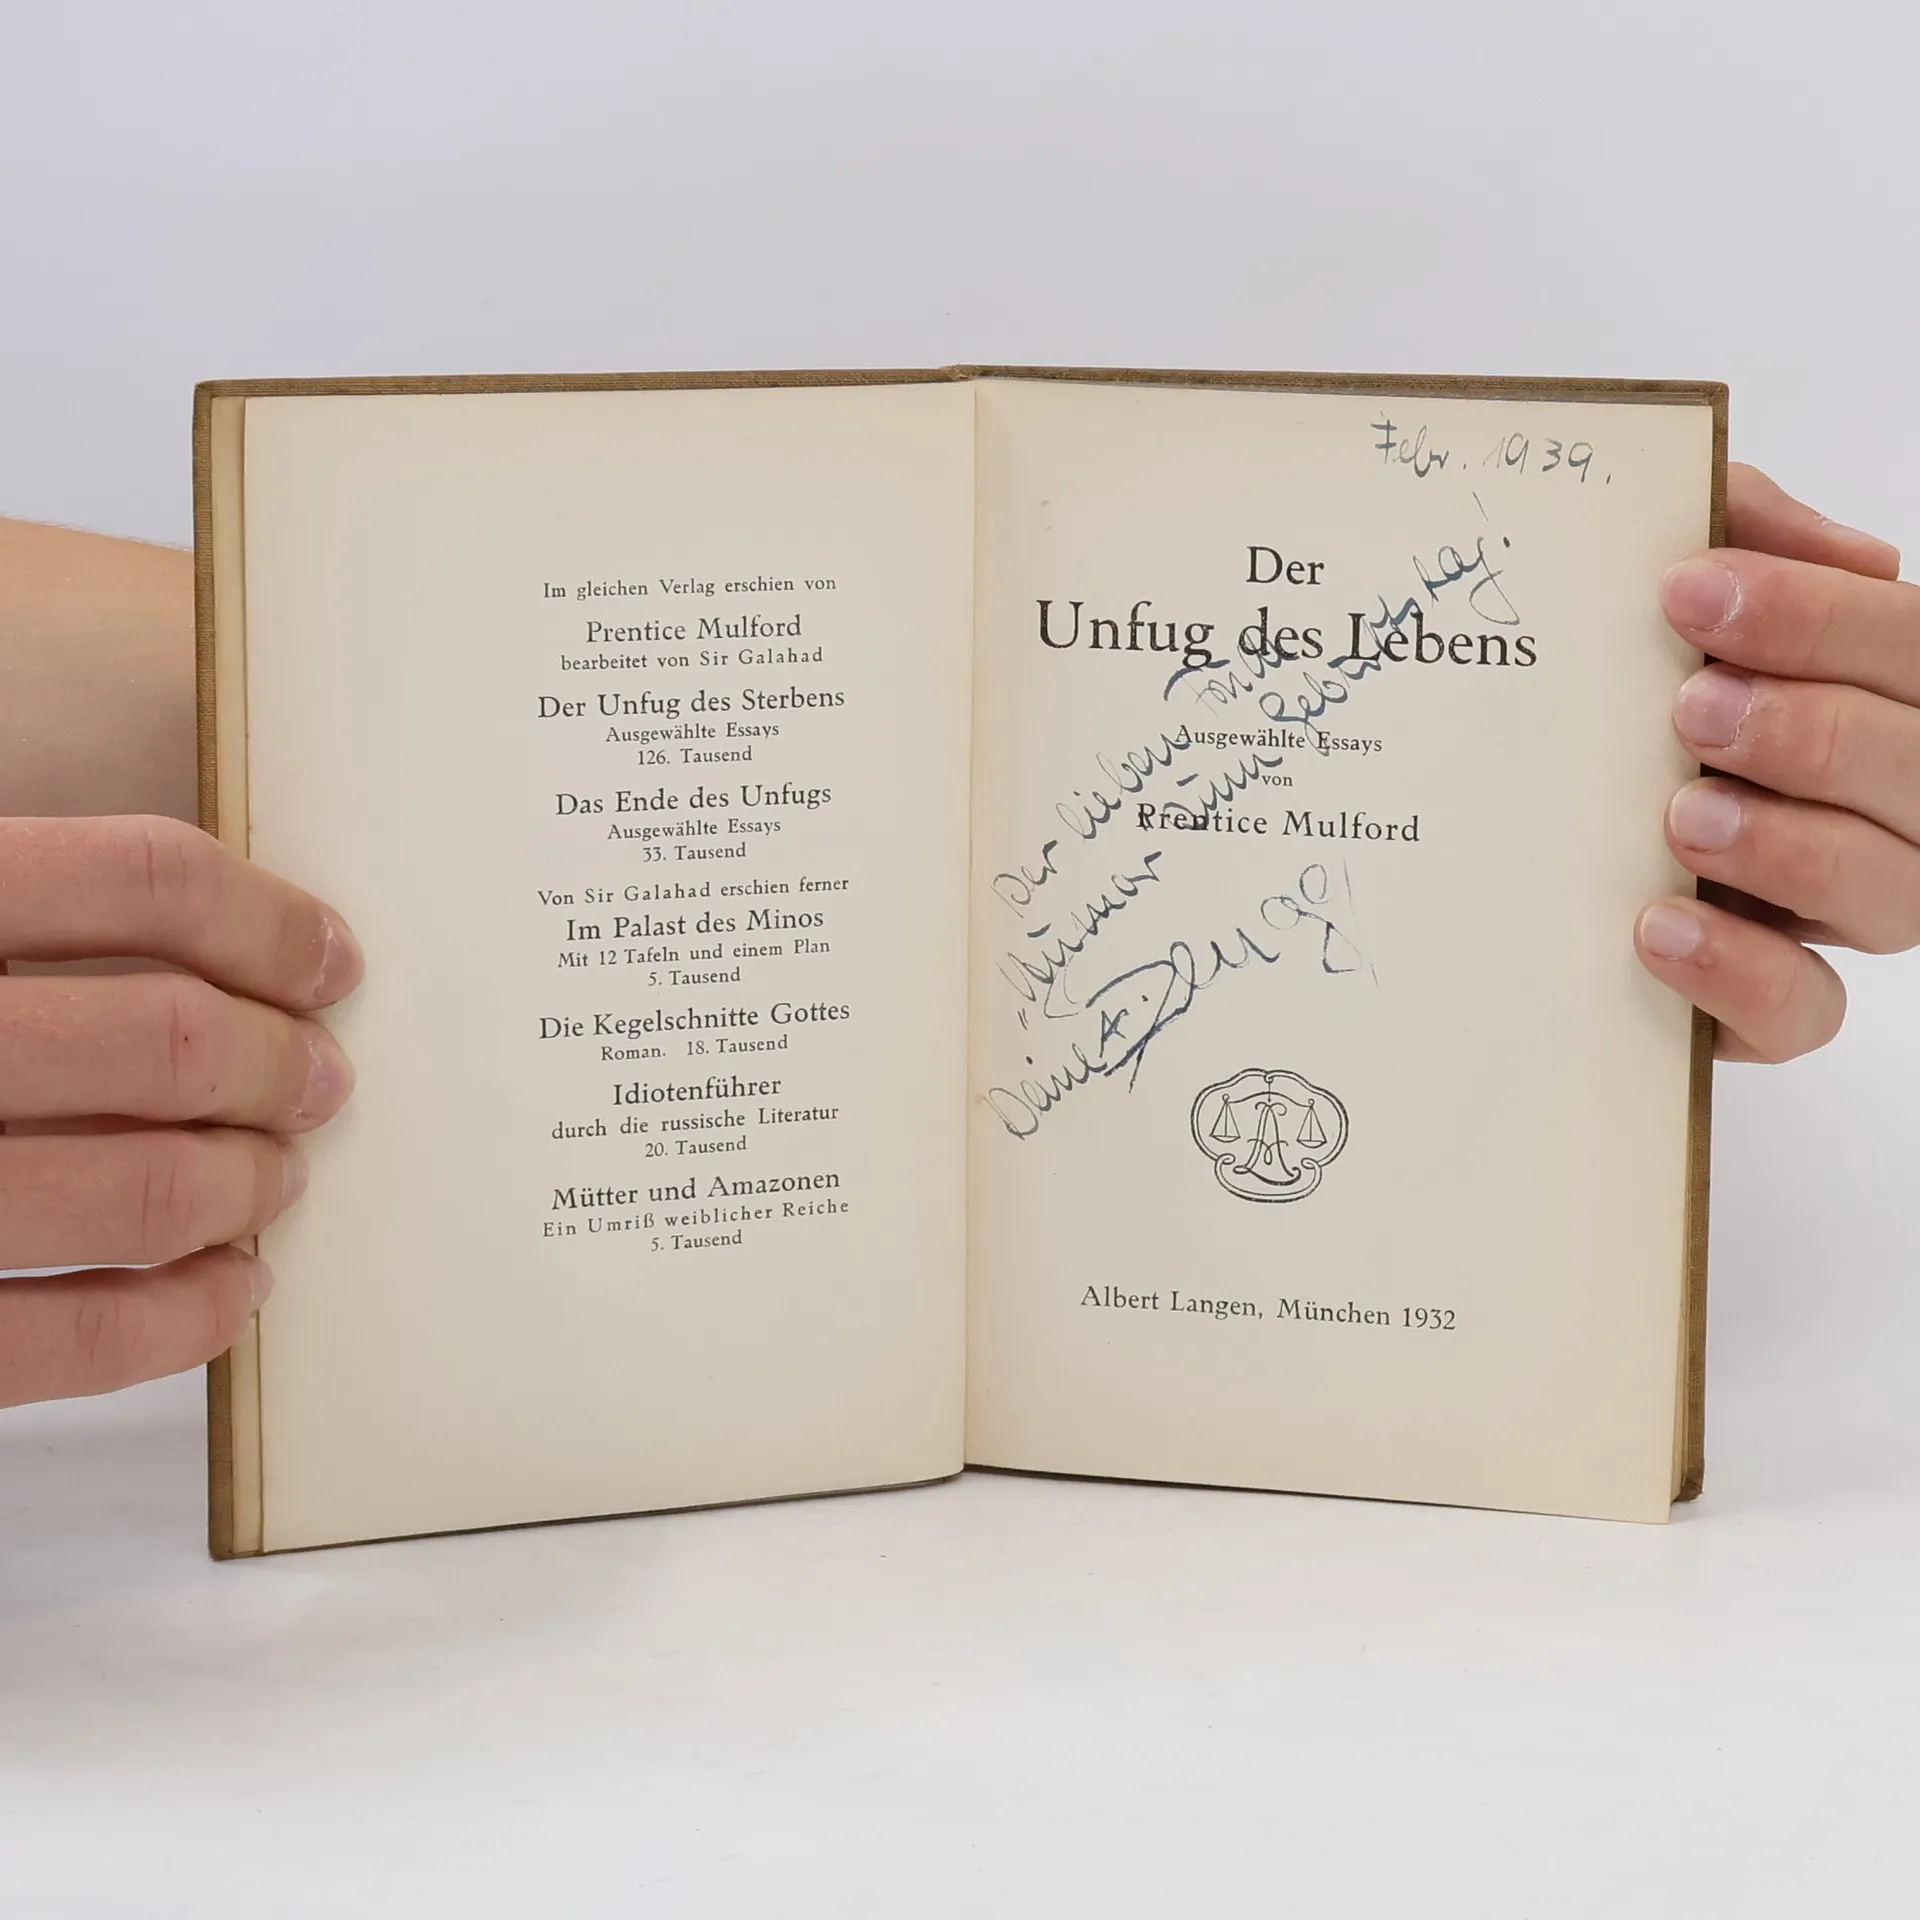 Im gleichen Verlag erschien von
Prentice Mulford
bearbeitet von Sir Galahad
Der Unfug des Sterbens
Ausgewählte Essays
126. Tausend
Das Ende des Unfugs
Ausgewählte Essays
33. Tausend
Von Sir Galahad erschien ferner
Im Palast des Minos
Mit 12 Tafeln und einem Plan
5. Tausend
Die Kegelschnitte Gottes
Roman. 18. Tausend
Idiotenführer
durch die russische Literatur
20. Tausend
Mütter und Amazonen
Ein Umriß weiblicher Reiche
5. Tausend
Febr. 1939.
Der
Unfug des Lebens
Ausgewählte Essays
von
Prentice Mulford
Der lieben
zum Geburtstag!
Deine
Albert Langen, München 1932